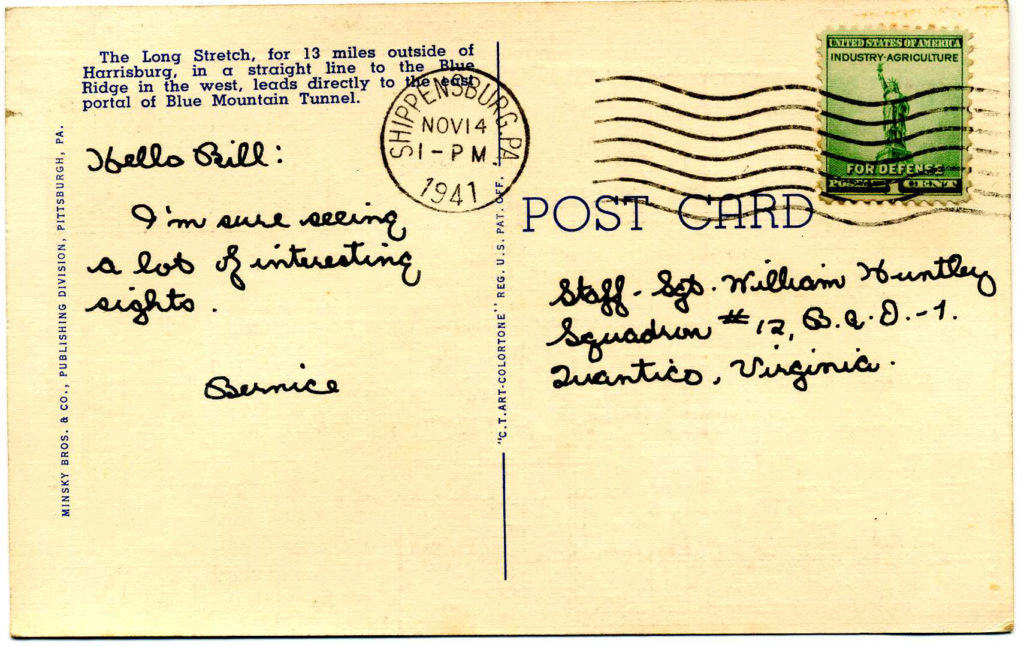 The Long Stretch, for 13 miles outside of
Harrisburg, in a straight line to the Blue
Ridge in the west, leads directly to the east
portal of Blue Mountain Tunnel.
SHIPPENSBURG, PA.
NOV 14
1 - PM
1941
UNITED STATES OF AMERICA
INDUSTRY-AGRICULTURE
FOR DEFENSE
1
POST CARD
Hello Bill:
I'm sure seeing
a lot of interesting
sights.
Bernice
Staff - Sgt. William Huntley
Squadron #12, B.a.D.-1.
Quantico, Virginia.
MINSKY BROS. & CO., PUBLISHING DIVISION, PITTSBURGH, PA.
"C.T. ART-COLORTONE" REG. U.S. PAT. OFF.